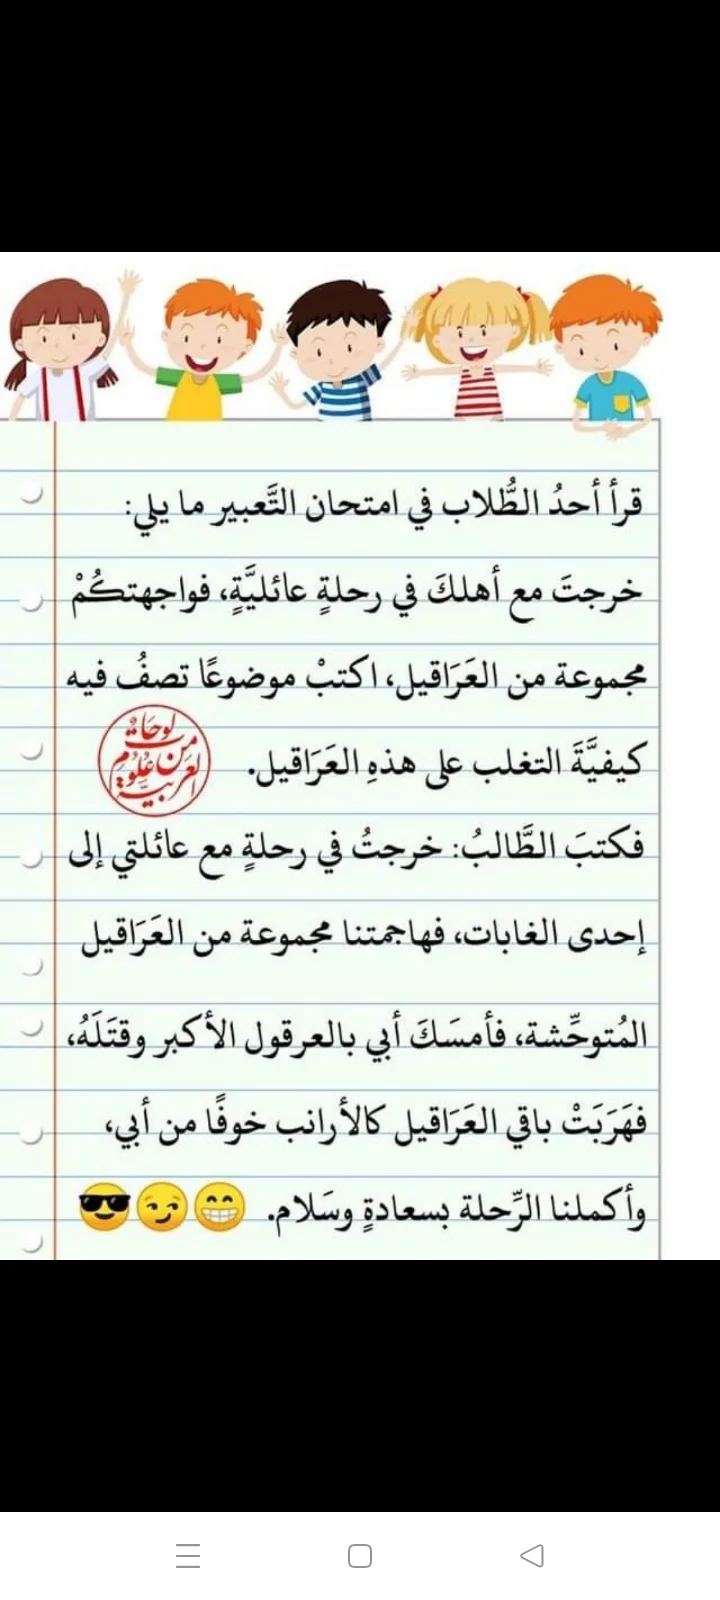 قرأ أحدُ الطُّلاب في امتحان التَّعبير ما يلي:
خرجتَ مع أهلكَ في رحلةٍ عائليَّةٍ، فواجهتكُمْ
مجموعة من العَرَاقيل، اكتبْ موضوعًا تصفُ فيه
كيفيَّةَ التغلب على هذهِ العَرَاقيل.
لوحات من علوم العربية
فكتبَ الطَّالبُ: خرجتُ في رحلةٍ مع عائلتي إلى
إحدى الغابات، فهاجمتنا مجموعة من العَرَاقيل
المُتوحِّشة، فأمسَكَ أبي بالعرقول الأكبر وقتَلَهُ،
فهَرَبَتْ باقي العَرَاقيل كالأرانب خوفًا من أبي،
وأكملنا الرِّحلة بسعادةٍ وسَلام. 😁😏😎